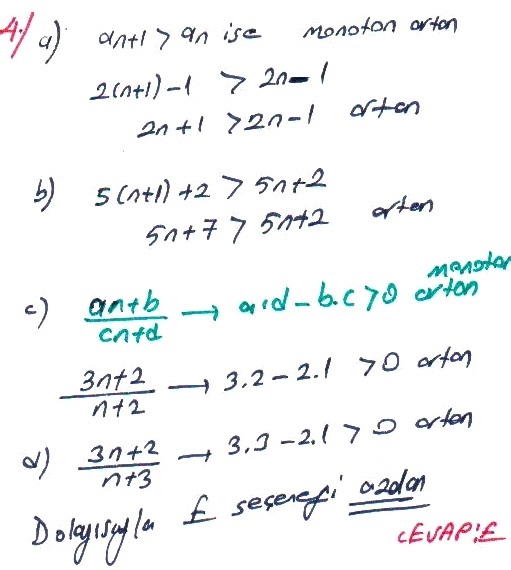 4.) a) an+1 > an ise monoton artan
2(n+1)-1 > 2n-1
2n+1 > 2n-1 artan
b) 5(n+1)+2 > 5n+2
5n+7 > 5n+2 artan
c) an+b / cn+d → a.d-b.c>0 monoton artan
3n+2 / n+2 → 3.2-2.1 >0 artan
d) 3n+2 / n+3 → 3.3-2.1 > 0 artan
Dolayısıyla E seçeneği azalan
CEVAP:E